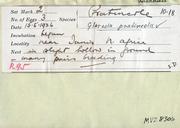 Set Mark 2 Pratincole 10-18
No. of Eggs 3 Species Glareola pratincola
Date 15-5-1926
Incubation begun
Locality near Tunis N Africa
Nest in slight hollow in ground
- many pairs breeding
R95
MVZ 8306